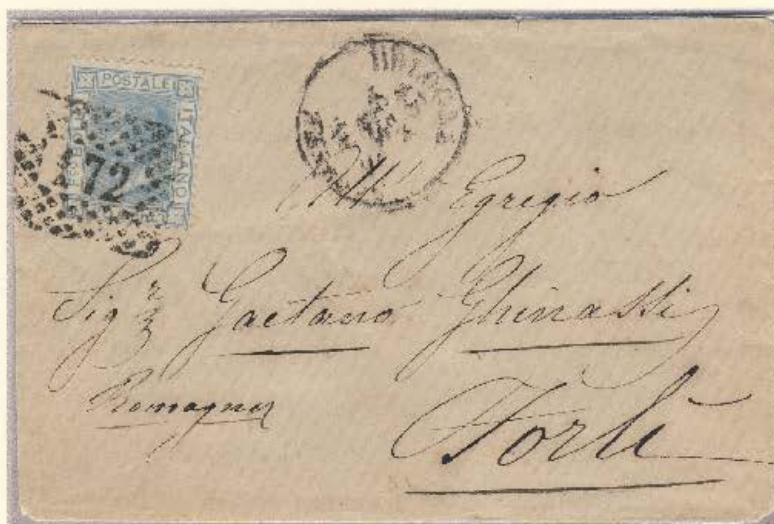 POSTALE
ITALIANO
BOLLO
172
BOLOGNA
All' Egregio
Sigr Gaetano Ghinassi
Romagna
Forlì